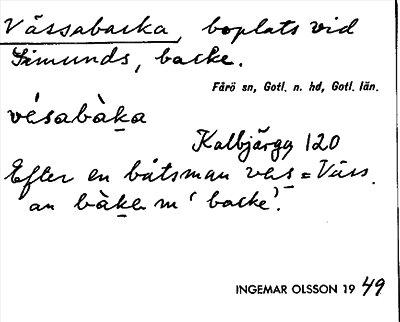 Vässabacka, boplats vid
Simunds, backe.
Fårö sn, Gotl. n. hd, Gotl. län.
vésabàka
Kalbjärga 120
Efter en båtsman ves = Väss.
an bàka m 'backe'.
INGEMAR OLSSON 19 49